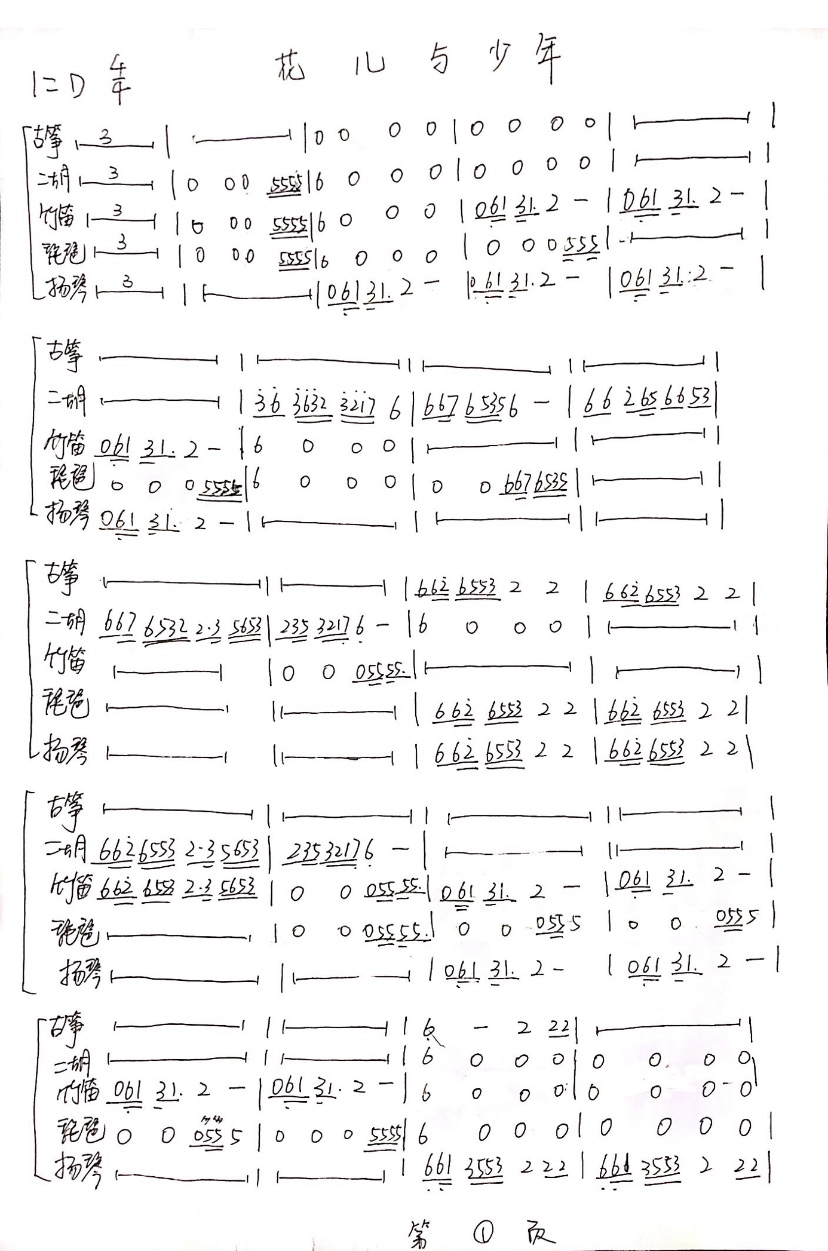 花儿与少年
1=D 4/4
古筝 3 | | 0 0 0 0 | 0 0 0 0 | |
二胡 3 | 0 0 0 5555 | 6 0 0 0 | 0 0 0 0 | |
竹笛 3 | 0 0 0 5555 | 6 0 0 0 | 061 31. 2 - | 061 31. 2 - |
琵琶 3 | 0 0 0 5555 | 6 0 0 0 | 0 0 0 555 | |
扬琴 3 | | 061 31. 2 - | 061 31. 2 - | 061 31. 2 - |
古筝 | | | |
二胡 | 36 3632 3217 6 | 667 6535 6 - | 66 265 6653 |
竹笛 061 31. 2 - | 6 0 0 0 | | |
琵琶 0 0 0 5555 | 6 0 0 0 | 0 0 667 6535 | |
扬琴 061 31. 2 - | | | |
古筝 | | 662 6553 2 2 | 662 6553 2 2 |
二胡 667 6532 2·3 5653 | 235 3217 6 - | 6 0 0 0 | |
竹笛 | 0 0 055 55. | | |
琵琶 | | 662 6553 2 2 | 662 6553 2 2 |
扬琴 | | 662 6553 2 2 | 662 6553 2 2 |
古筝 | | | |
二胡 662 6553 2·3 5653 | 235 3217 6 - | | |
竹笛 662 6553 2·3 5653 | 0 0 055 55. | 061 31. 2 - | 061 31. 2 - |
琵琶 | 0 0 055 55. | 0 0 055 5 | 0 0 055 5 |
扬琴 | | 061 31. 2 - | 061 31. 2 - |
古筝 | | 6 - 2 22 | |
二胡 | | 6 0 0 0 | 0 0 0 0 |
竹笛 061 31. 2 - | 061 31. 2 - | 6 0 0 0 | 0 0 0 0 |
琵琶 0 0 055 5 | 0 0 0 5555 | 6 0 0 0 | 0 0 0 0 |
扬琴 | | 661 3553 2 22 | 661 3553 2 22 |
第 ① 页